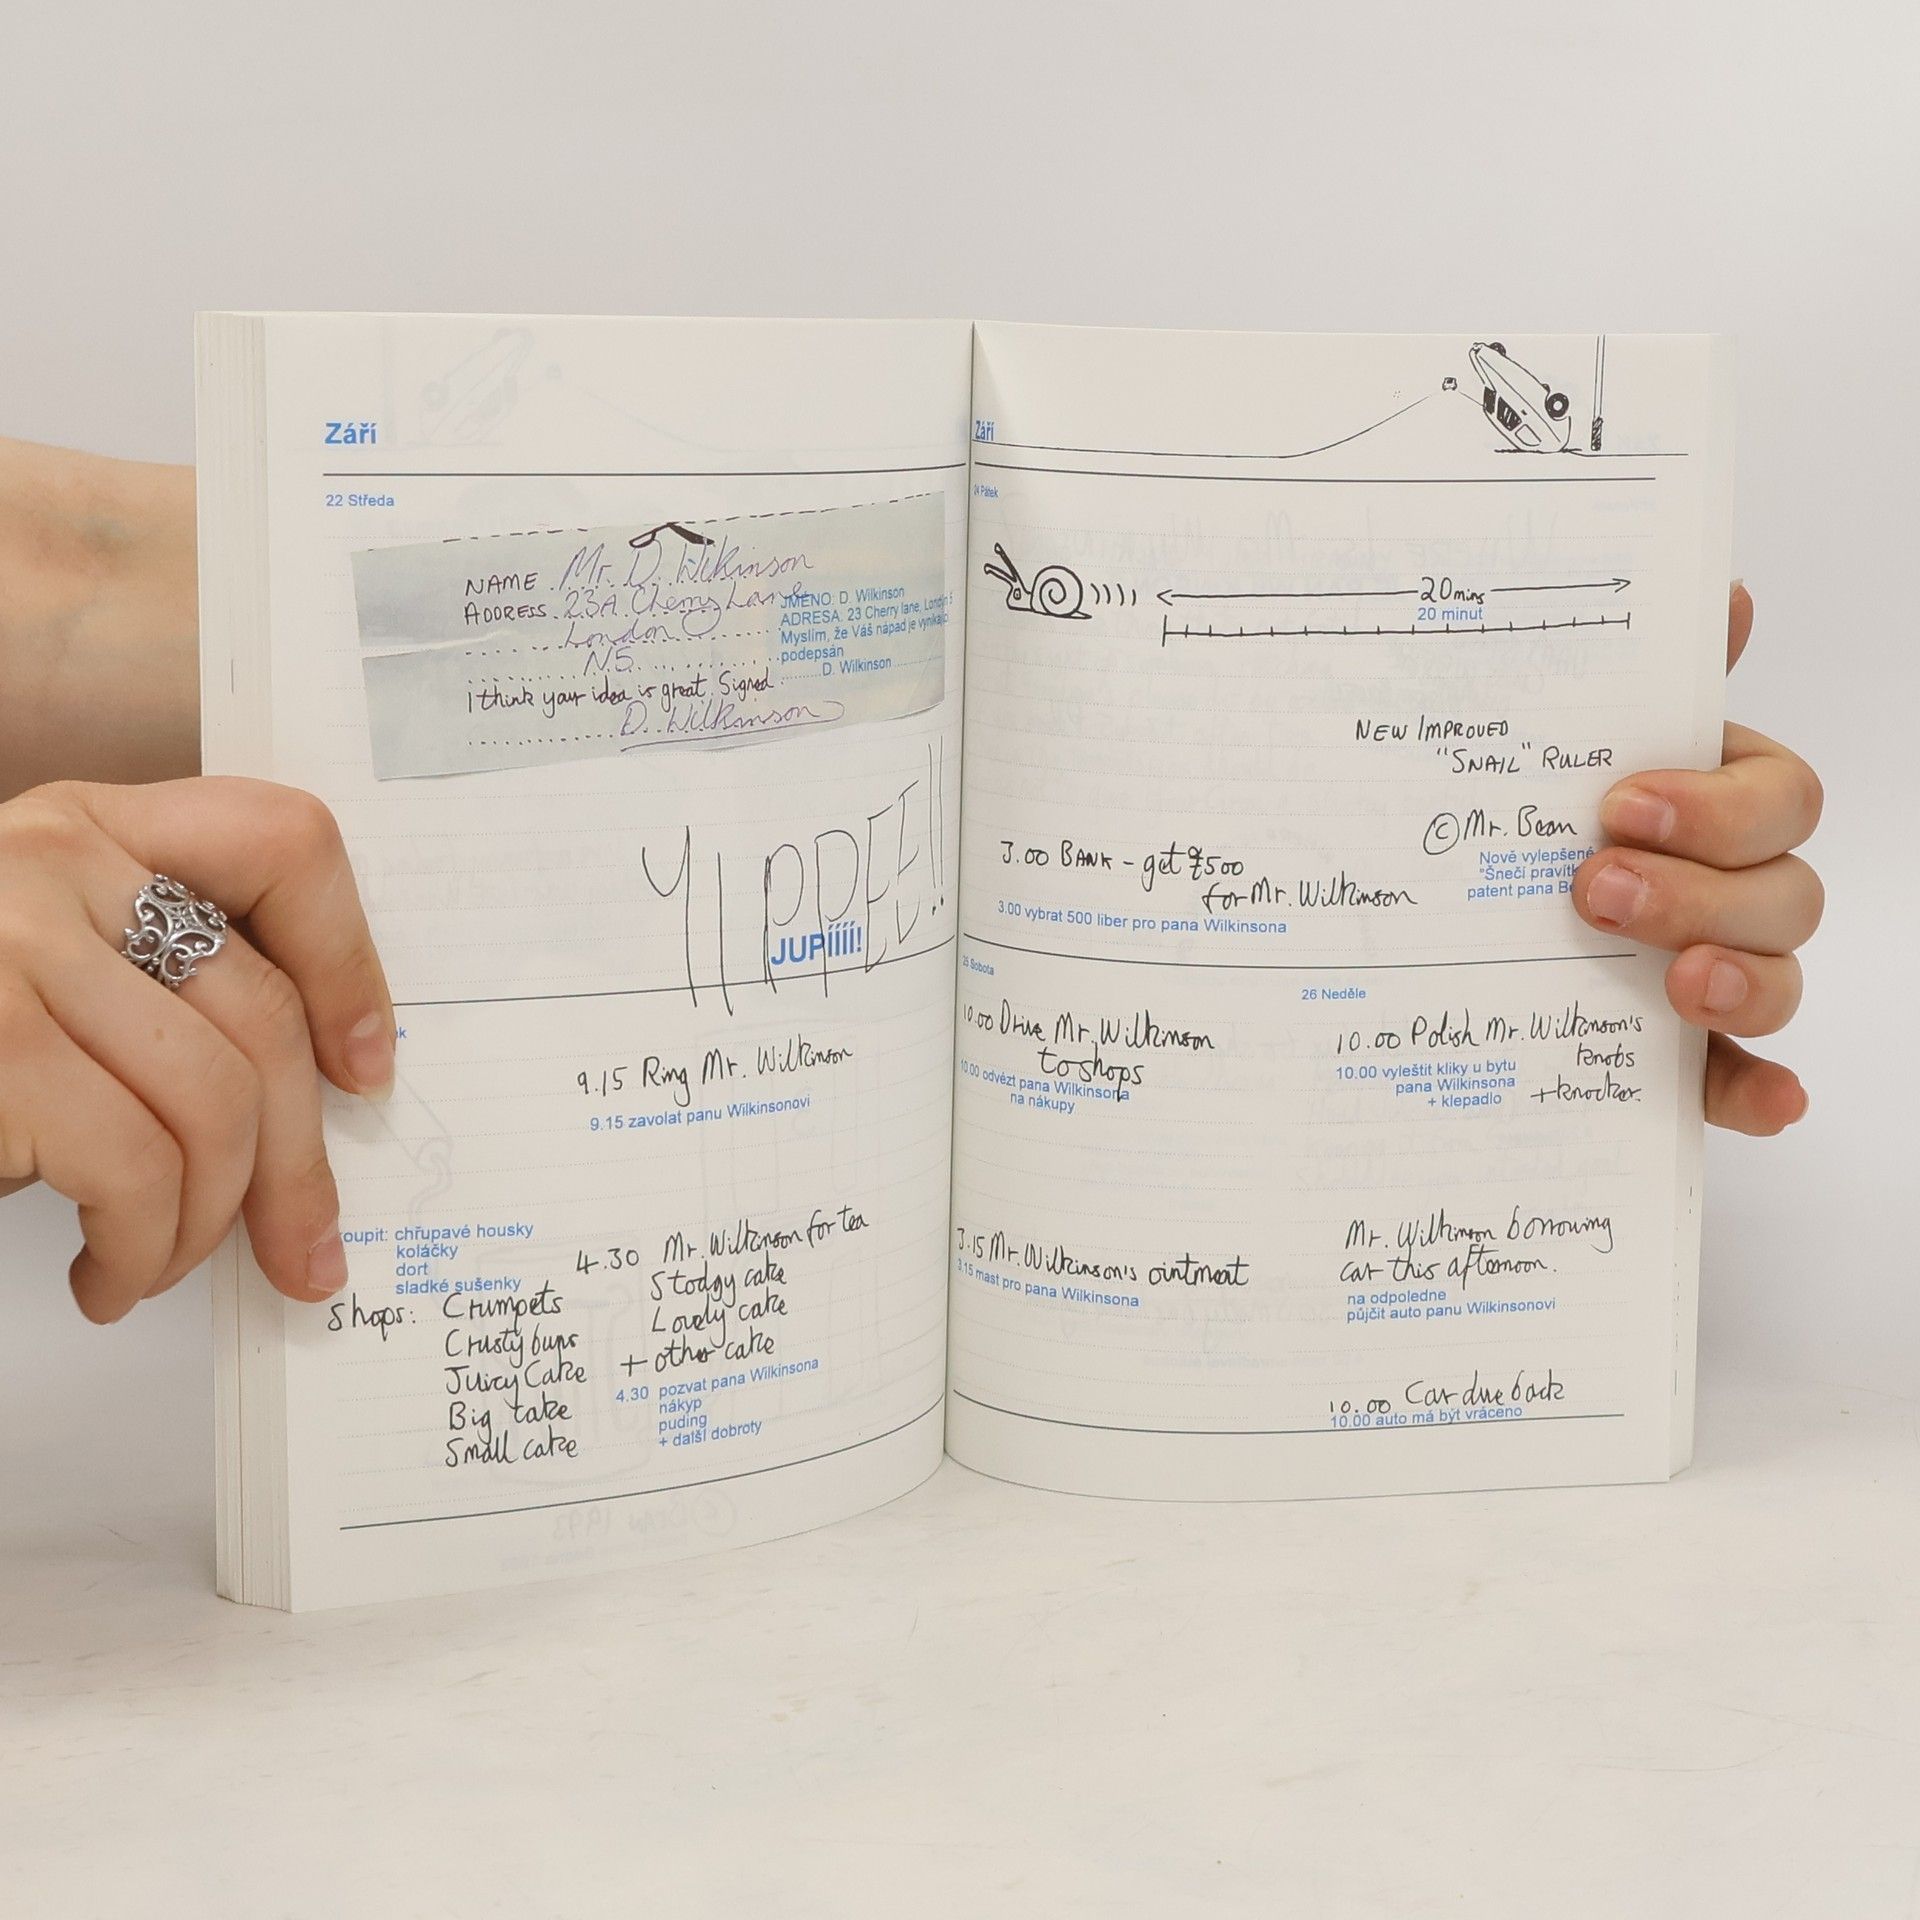 Září
22 Středa
NAME Mr. D. Wilkinson
ADDRESS 23A Cherry Lane
London
N5
I think your idea is great. Signed
D. Wilkinson
JMÉNO: D. Wilkinson
ADRESA: 23 Cherry lane, Londýn 5
Myslím, že Váš nápad je vynikající
podepsán
D. Wilkinson
YIPPEE!!
JUPÍÍÍÍ!
9.15 Ring Mr. Wilkinson
9.15 zavolat panu Wilkinsonovi
chřupavé housky
koláčky
dort
sladké sušenky
Shops: Crumpets
Crusty buns
Juicy Cake
Big cake
Small cake
4.30 Mr. Wilkinson for tea
Stodgy cake
Lovely cake
+ other cake
4.30 pozvat pana Wilkinsona
nákyp
puding
+ další dobroty
Září
24 Pátek
20 mins
20 minut
NEW IMPROVED
"SNAIL" RULER
© Mr. Bean
Nově vylepšené
"Šnečí
patent pana
3.00 BANK - get £500
for Mr. Wilkinson
3.00 vybrat 500 liber pro pana Wilkinsona
25 Sobota
10.00 Drive Mr. Wilkinson
to shops
10.00 odvézt pana Wilkinsona
na nákupy
3.15 Mr. Wilkinson's ointment
3.15 mast pro pana Wilkinsona
26 Neděle
10.00 Polish Mr. Wilkinson's
knobs
+ knocker.
10.00 vyleštit kliky u bytu
pana Wilkinsona
+ klepadlo
Mr. Wilkinson borrowing
car this afternoon.
na odpoledne
půjčit auto panu Wilkinsonovi
10.00 Car due back
10.00 auto má být vráceno